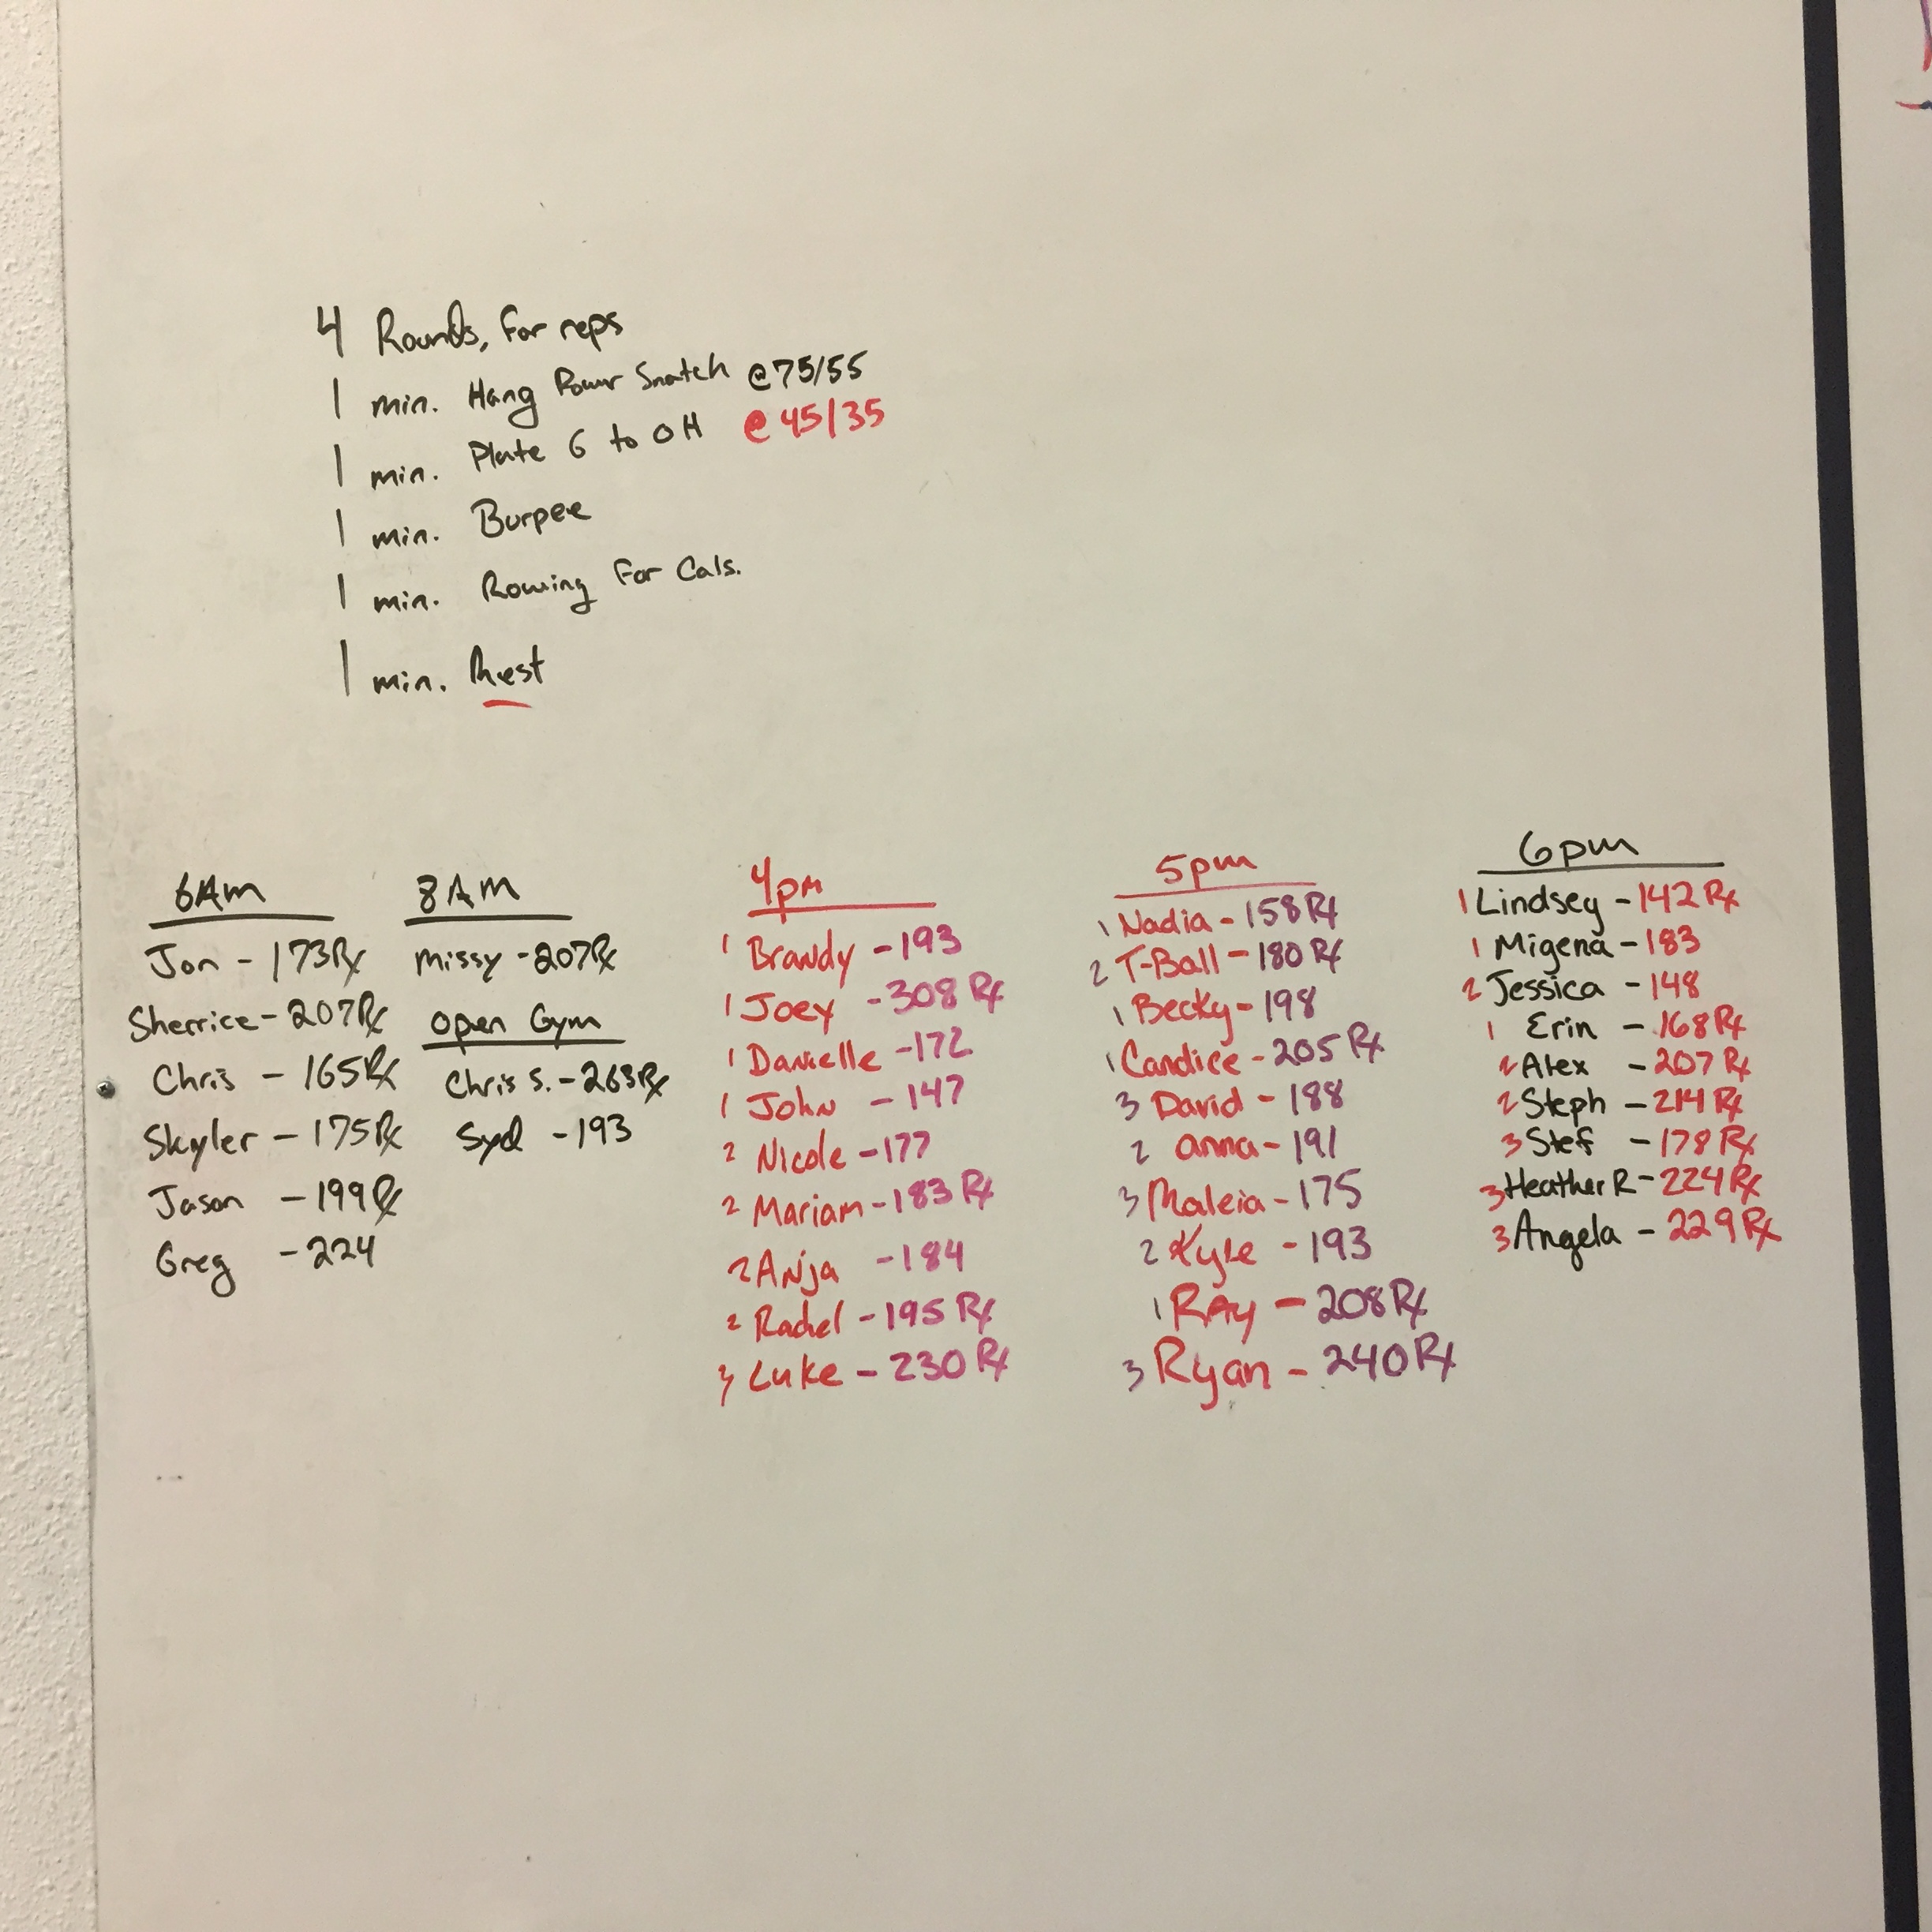 4 Rounds, for reps
1 min. Hang Power Snatch @75/55
1 min. Plate G to OH @45/35
1 min. Burpee
1 min. Rowing for Cals.
1 min. Rest
6Am
Jon - 173Rx
Sherrice - 207Rx
Chris - 165Rx
Skyler - 175Rx
Jason - 199Rx
Greg - 224
8AM
Missy - 207Rx
Open Gym
Chris S. - 263Rx
Syd - 193
4pm
1 Brandy - 193
1 Joey - 308 Rx
1 Danielle - 172
1 John - 147
2 Nicole - 177
2 Mariam - 183 Rx
2 Anja - 184
2 Rachel - 195 Rx
3 Luke - 230 Rx
5pm
1 Nadia - 158 Rx
2 T-Ball - 180 Rx
1 Becky - 198
1 Candice - 205 Rx
3 David - 188
2 Anna - 191
3 Maleia - 175
2 Kyle - 193
1 RAy - 208 Rx
3 Ryan - 240 Rx
6pm
1 Lindsey - 142 Rx
1 Migena - 183
2 Jessica - 148
1 Erin - 168 Rx
2 Alex - 207 Rx
2 Steph - 214 Rx
3 Stef - 178 Rx
3 Heather R - 224 Rx
3 Angela - 229 Rx